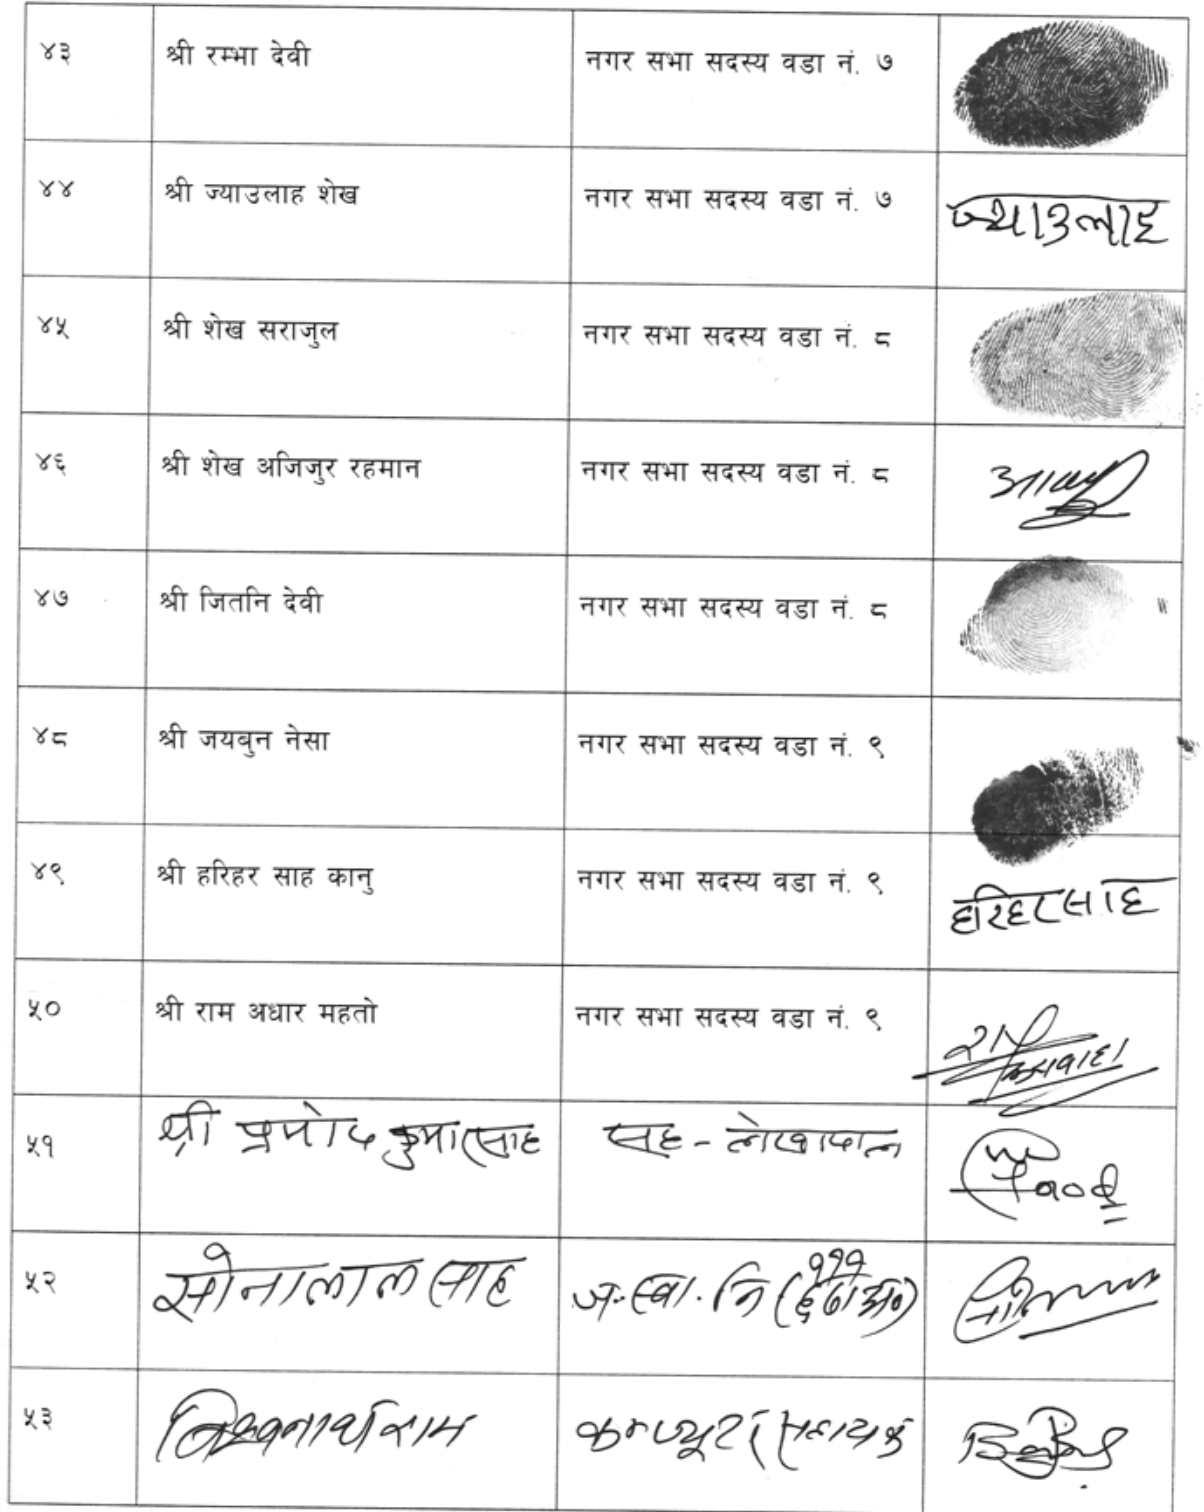 ४३ श्री रम्भा देवी नगर सभा सदस्य वडा नं. ७
४४ श्री ज्याउलाह शेख नगर सभा सदस्य वडा नं. ७ ज्याउलाह
४५ श्री शेख सराजुल नगर सभा सदस्य वडा नं. ८
४६ श्री शेख अजिजुर रहमान नगर सभा सदस्य वडा नं. ८
४७ श्री जितनि देवी नगर सभा सदस्य वडा नं. ८
४८ श्री जयबुन नेसा नगर सभा सदस्य वडा नं. ९
४९ श्री हरिहर साह कानु नगर सभा सदस्य वडा नं. ९ हरिहर साह
५० श्री राम अधार महतो नगर सभा सदस्य वडा नं. ९
५१ श्री प्रमोद कुमार साह सह-लेखापाल
५२ सोनालाल साह
५३ विश्वनाथ राम कम्प्युटर सहायक